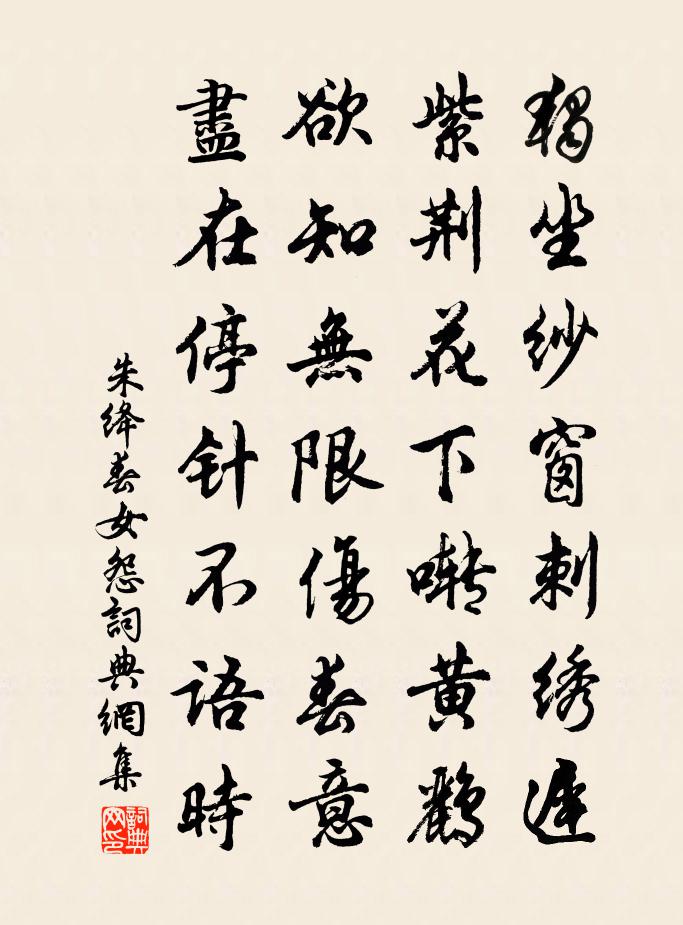 獨坐紗窗刺綉遲
紫荆花下囀黄鸝
欲知無限傷春意
盡在停针不語時
朱絳春女怨詞典網集
詞典网印